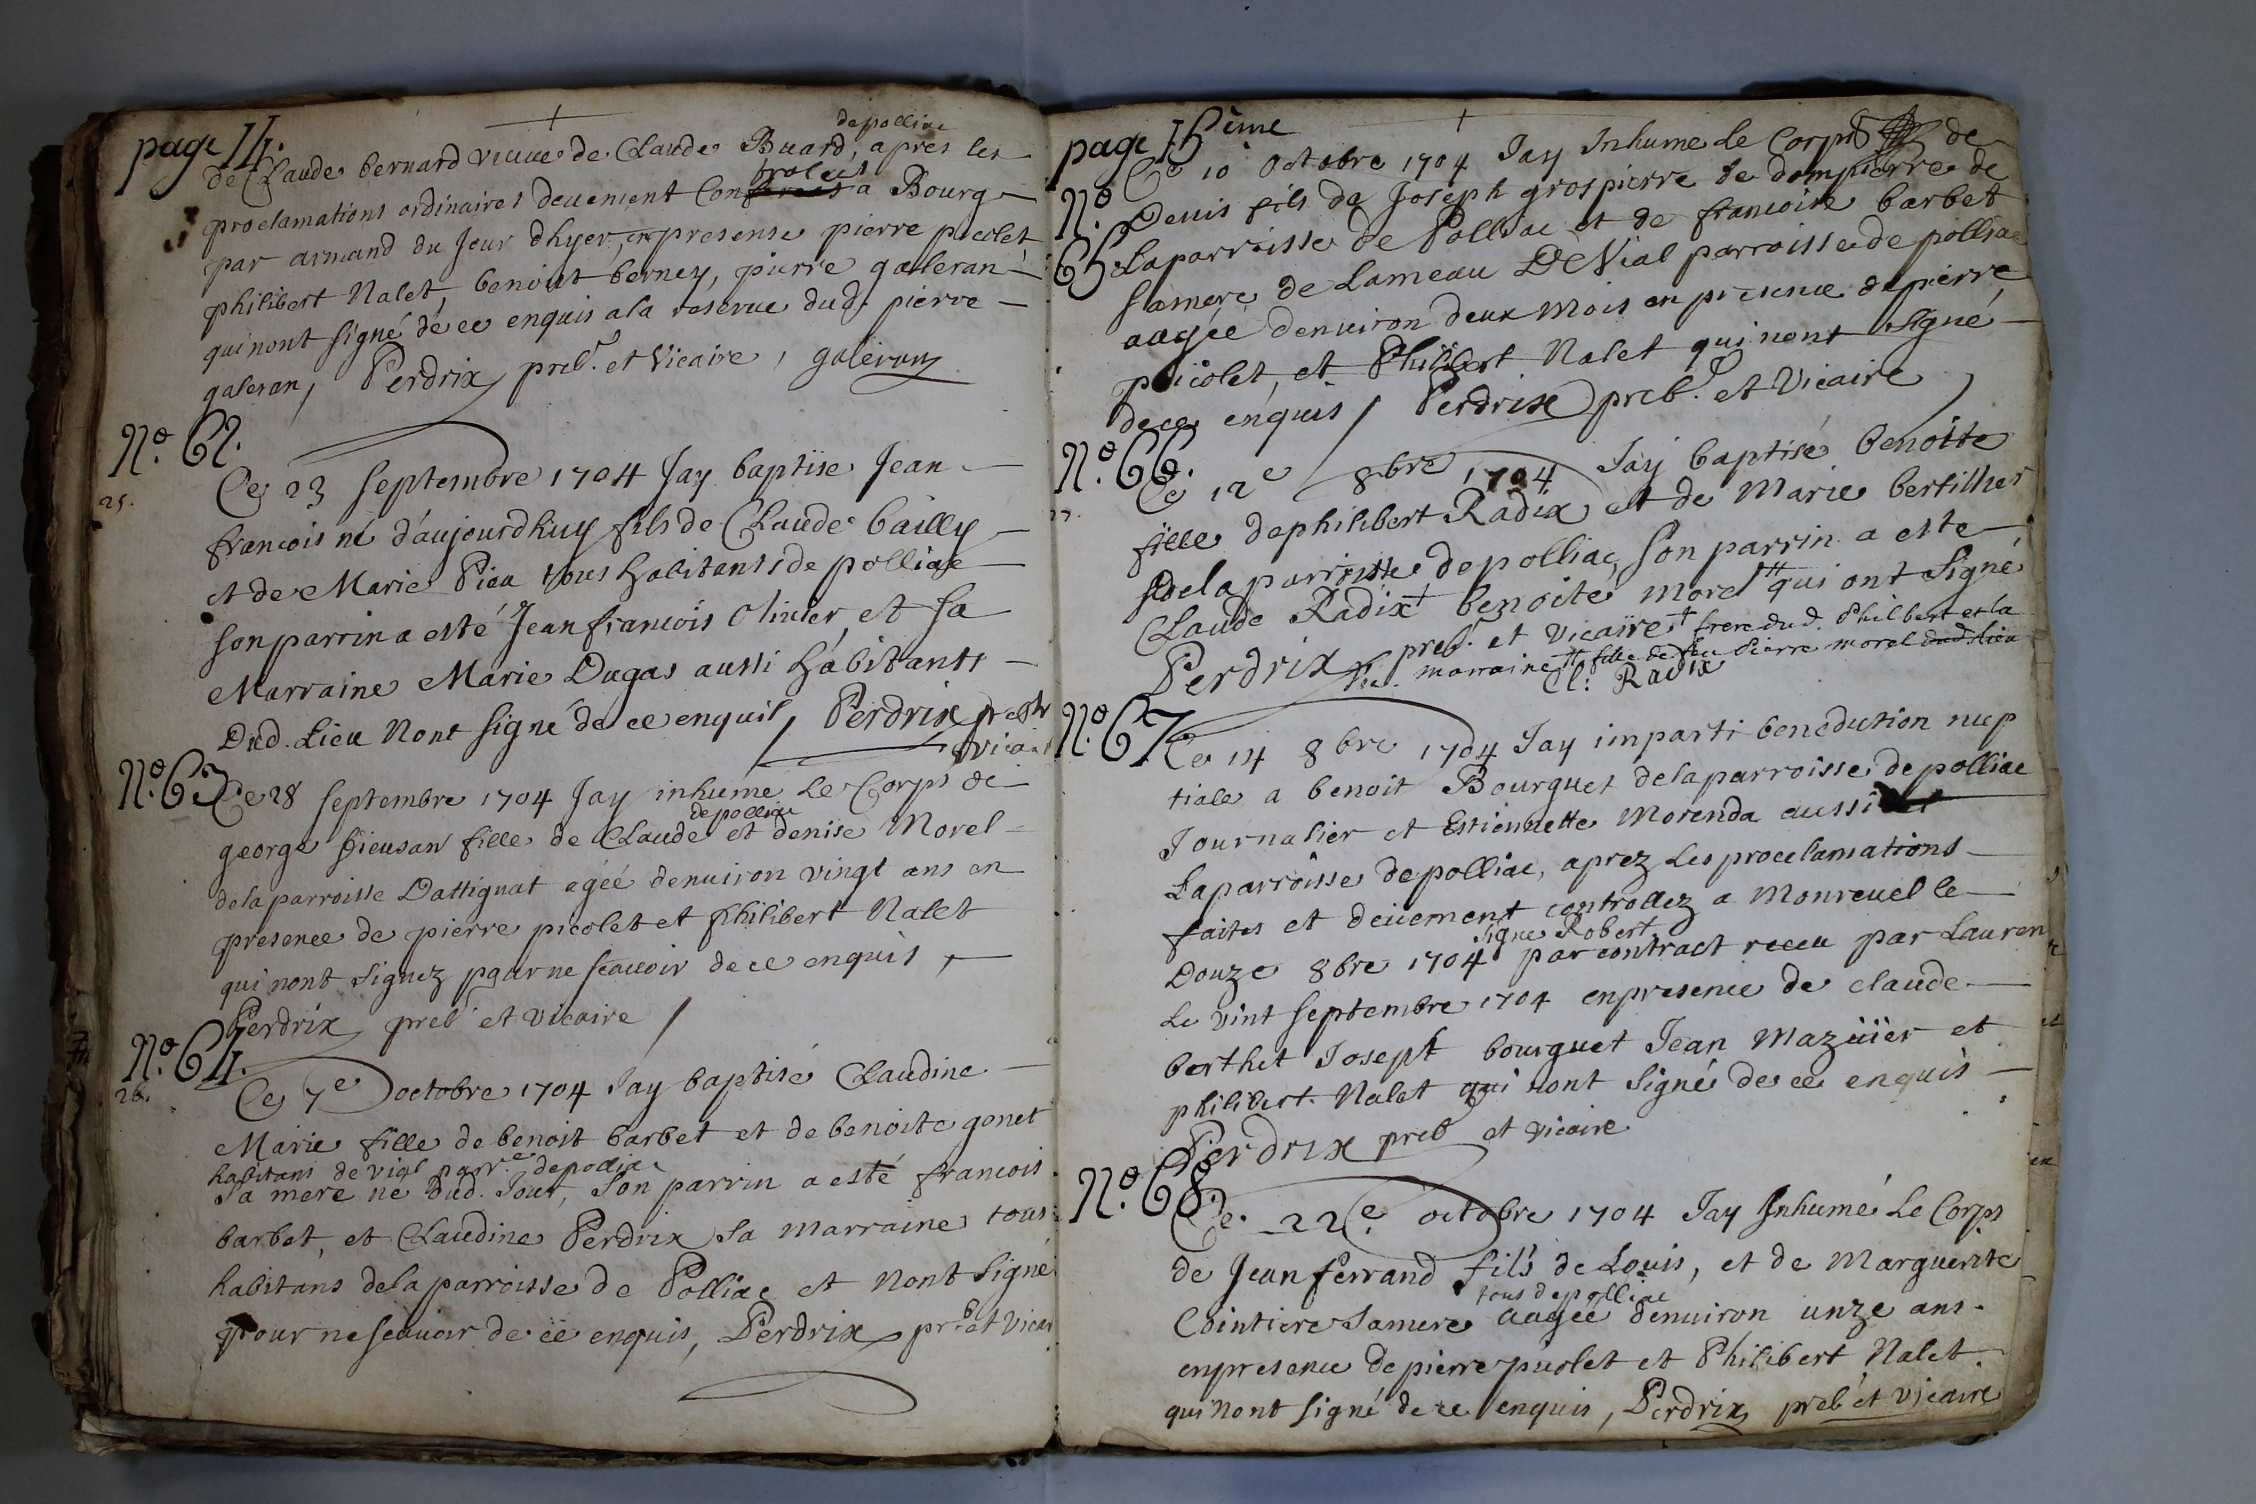 page 14.
depolliac
de Claude bernard veuve de Claude Buard, apres les
trolees
proclamations ordinaires deuement Con a Bourg
par armand du Jour dhyer, en presense pierre picolet
philibert Nalet, benoist berney, pierre galeran
qui nont signé de ce enquis a la reserue dud. pierre
galeran, Perdrix preb. et Vicaire, galeran
No. 62.
25.
Ce 23 septembre 1704 Jay baptise Jean
francois né d'aujourdhuy fils de Claude bailly
et de Marie Picu tous habitants de polliac
son parrin a esté Jean francois Olivier, et sa
Marraine Marie Dugas aussi habitants
Dud. Lieu Nont signé de ce enquis, Perdrix prestr
vicai
No. 63.
Ce 28 septembre 1704 Jay inhume le Corps de
depolliac
george fieusan fille de Claude et denise Morel
de la parroisse Dattignat agée denuiron vingt ans en
presence de pierre picolet et philibert Nalet
qui nont signez pour ne scauoir de ce enquis,
Perdrix preb et vicaire
No. 64.
26.
Ce 7e octobre 1704 Jay baptisé Claudine
Marie fille de benoit barbet et de benoite gonet
habitans de vial parr.e depolliac
Sa mere ne Dud. Jour, Son parrin a esté francois
barbet, et Claudine Perdrix sa marraine tous
habitans de la parroisse de Polliac et Nont signé
pour ne scauoir de ce enquis, Perdrix preb et Vicai
page 15ème
No. 65
Ce 10 Octobre 1704 Jay Inhume Le Corps de
Denis fils de Joseph grospierre de dompierre de
Laparroisse de Polliac et de francoise barbet
Samere de Lameau De Vial parroisse de polliac
aagée denuiron deux mois en presence de pierre
picolet, et Philibert Nalet qui nont signé
de ce enquis, Perdrix preb. et Vicaire
No. 66.
27.
Ce 12e 8bre 1704 Jay baptisé benoite
fille dephilibert Radix et de Marie bertillier
de la parroisse depolliac, son parrin a este
Claude Radix† benoite morel†† qui ont signé
Perdrix preb. et vicaire † frere dud. Philbert et la
marraine †† fille de feu Pierre morel dud. lieu
Cl: Radix
No. 67
Ce 14 8bre 1704 Jay imparti benediction nup
tiale a benoit Bourguet delaparroisse de polliac
Journalier et Estiennette Morenda aussi
Laparroisse depolliac, aprez Les proclamations
faites et deüement controllez a Monreuel le
signe Robert
Douze 8bre 1704 par contract receu par Lauren
Le vint septembre 1704 enpresence de claude
berthet Joseph bourguet Jean Mazüier et
philibert Nalet qui nont signé de ce enquis
Perdrix preb et vicaire
No. 68.
Ce 22e. octobre 1704 Jay Inhumé Le Corps
de Jean ferrand fils de Louis, et de Marguerite
tous depolliac
Cointiere Samere aagée denuiron unze ans.
enpresence de pierre picolet et Philibert Nalet.
qui Nont signé de ce enquis, Perdrix preb et vicaire